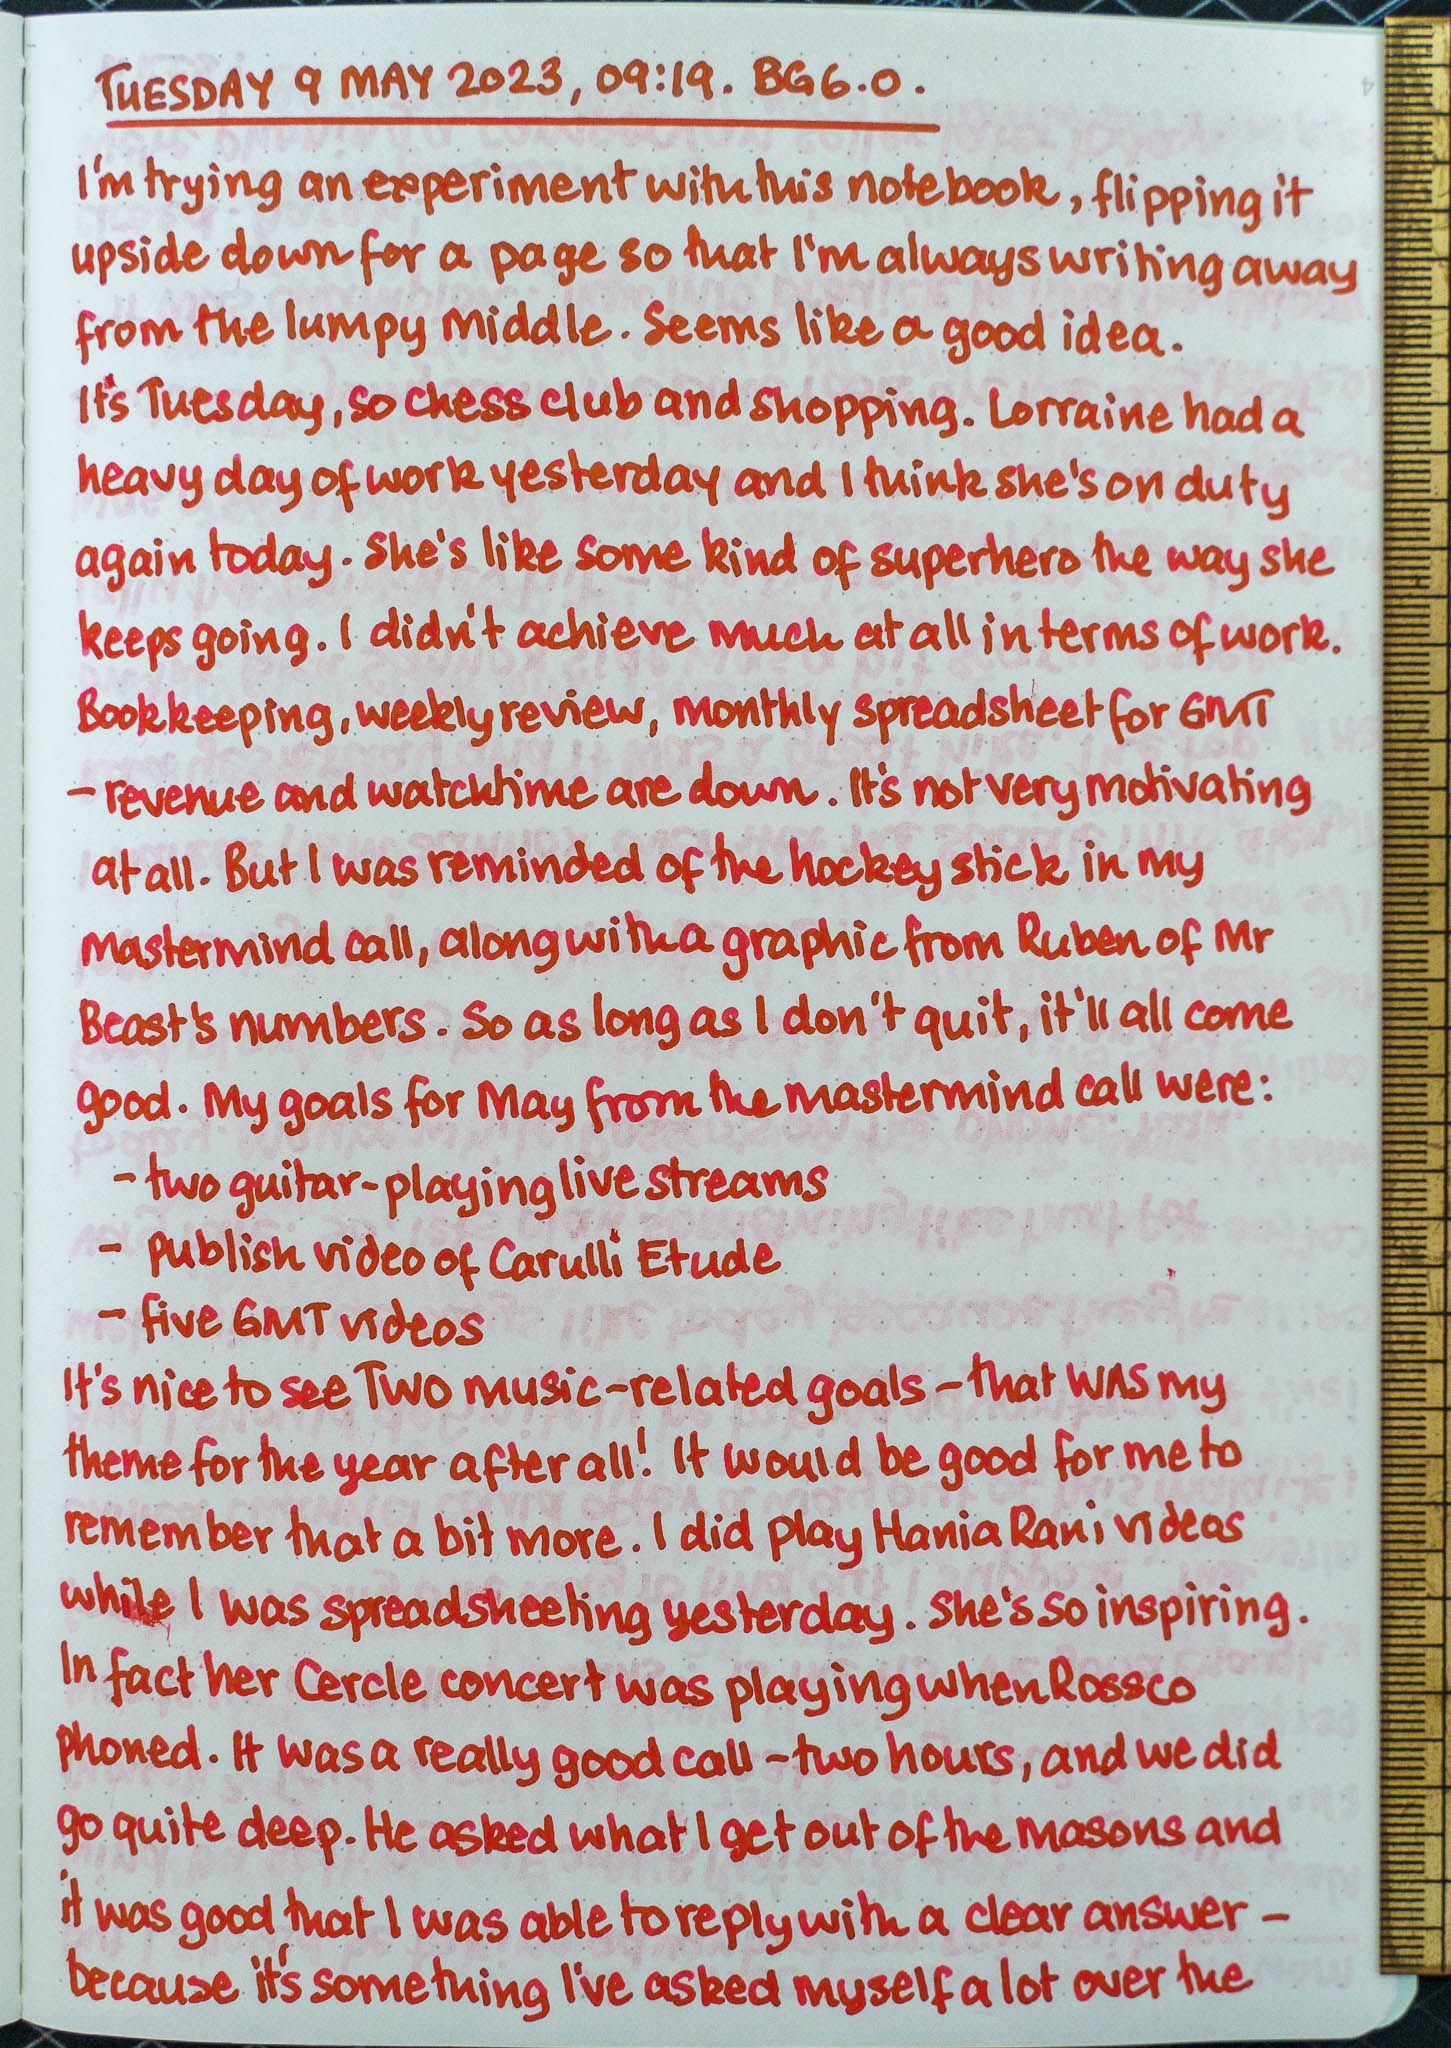 TUESDAY 9 MAY 2023, 09:19. BG6.0.
I'm trying an experiment with this notebook, flipping it
upside down for a page so that I'm always writing away
from the lumpy middle. Seems like a good idea.
It's Tuesday, so chess club and shopping. Lorraine had a
heavy day of work yesterday and I think she's on duty
again today. She's like some kind of superhero the way she
keeps going. I didn't achieve much at all in terms of work.
Bookkeeping, weekly review, monthly spreadsheet for GMT
- revenue and watchtime are down. It's not very motivating
at all. But I was reminded of the hockey stick in my
mastermind call, along with a graphic from Ruben of Mr
Beast's numbers. So as long as I don't quit, it'll all come
good. My goals for May from the mastermind call were:
- two guitar-playing live streams
- publish video of Carulli Etude
- five GMT videos
It's nice to see TWO music-related goals - that WAS my
theme for the year after all! It would be good for me to
remember that a bit more. I did play Hania Rani videos
while I was spreadsheeting yesterday. She's so inspiring.
In fact her Cercle concert was playing when Rossco
phoned. It was a really good call - two hours, and we did
go quite deep. He asked what I get out of the masons and
it was good that I was able to reply with a clear answer -
because it's something I've asked myself a lot over the